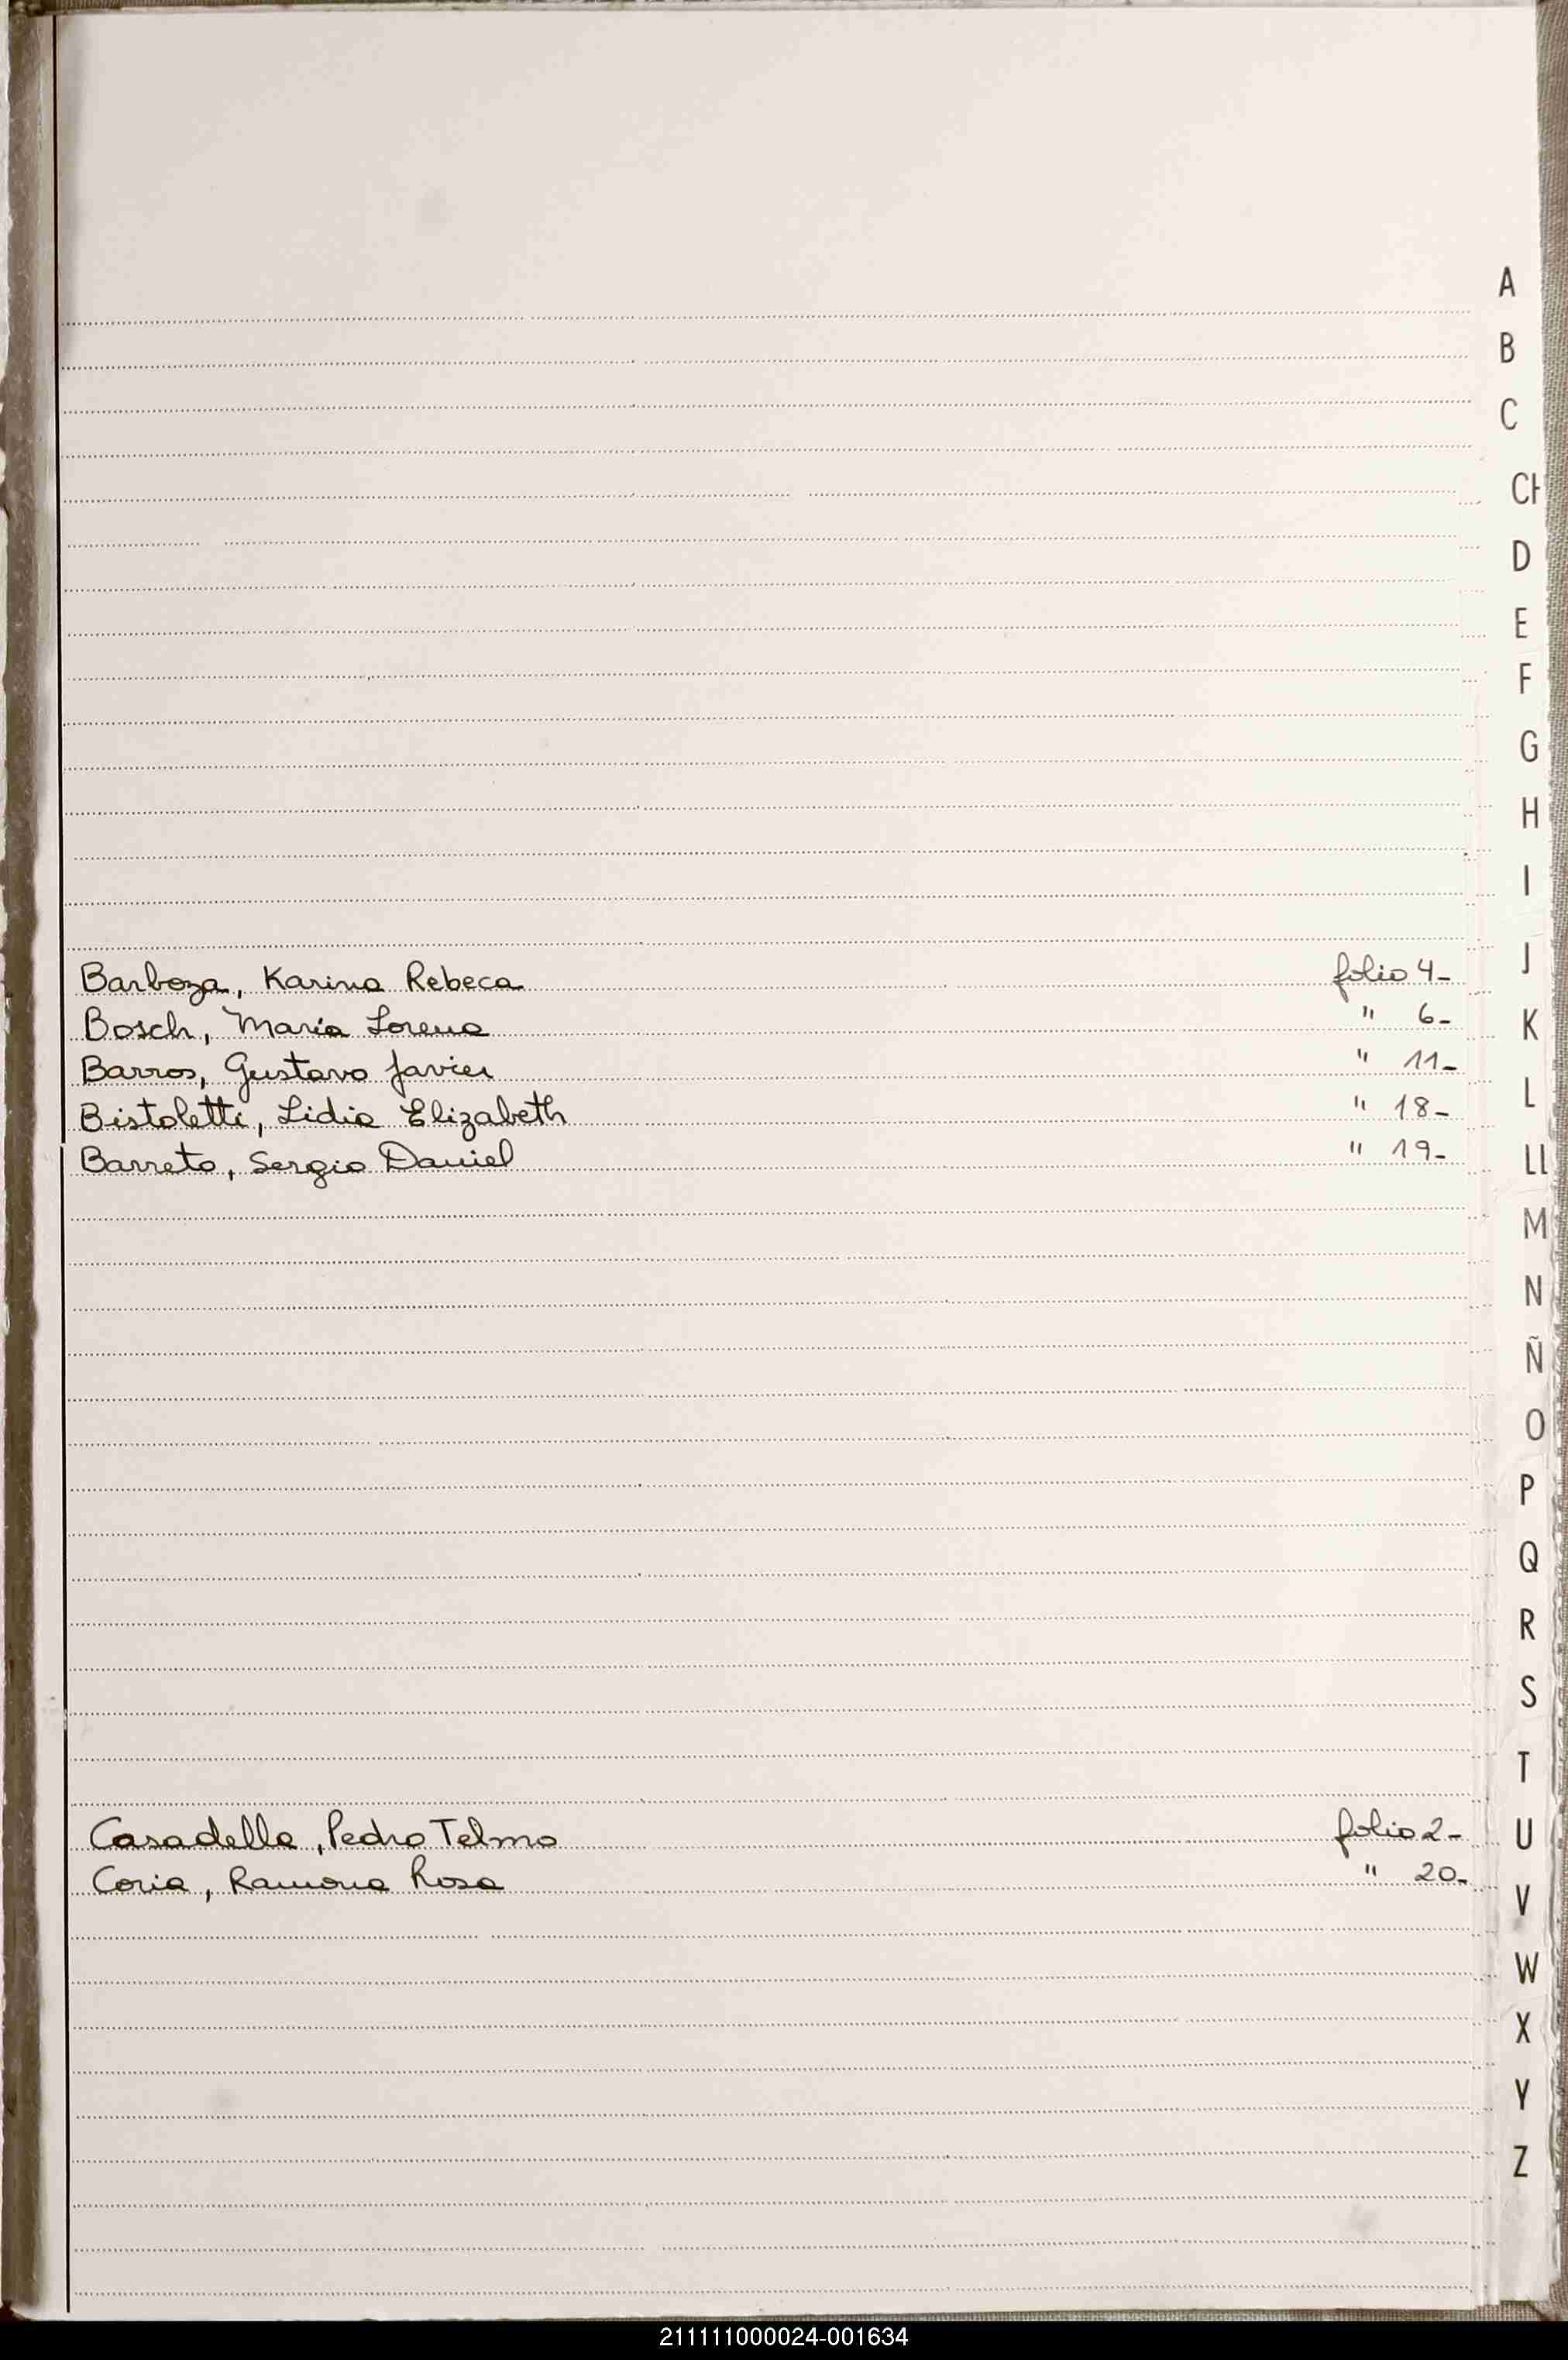 A
B
C
CH
D
E
F
G
H
I
J
Barboza, Karina Rebeca folio 4-
Bosch, María Lorena " 6-
K
Barros, Gustavo Javier " 11-
L
Bistoletti, Lidia Elizabeth " 18-
Barreto, Sergio Daniel " 19-
LL
M
N
Ñ
O
P
Q
R
S
T
Casadella, Pedro Telmo folio 2-
U
Coria, Ramona Rosa " 20-
V
W
X
Y
Z
211111000024-001634